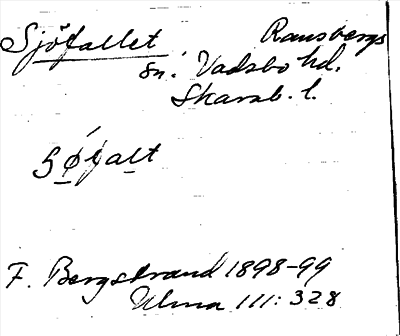 Sjöfallet Ransbergs
sn. Vadsbo hd.
Skarab. l.
F. Bergstrand 1898-99
Ulma 111: 328